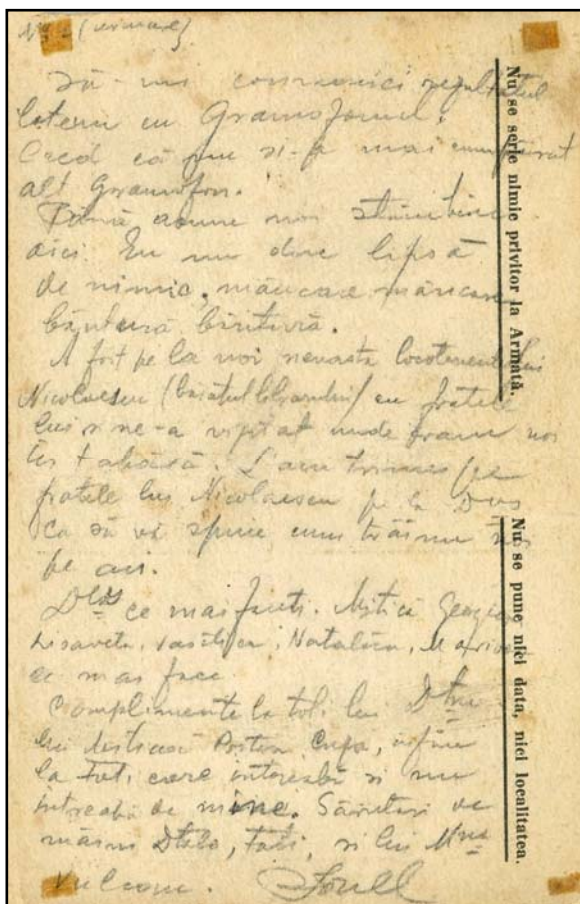 Să-mi comunici rezultatul
cu Gramofonul.
Cred că nu și-a mai cumpărat
alt Gramofon.
Până acum noi stăm bine
aici. Eu nu duc lipsă
de nimic, mâncare mâncare
băutură băutură.
A fost pe la noi nevasta locotenentului
Nicolaescu (băiatul) cu fratele
lui și ne-a vizitat unde eram noi
tabără. L'am trimes pe
fratele lui Nicolaescu pe la Dvs
ca să vă spuie cum trăim noi
pe aici.
ce mai faceți. Mitică
Lisaveta, Vasilica, Natalița,
ce mai face
Complimente la toți lui
la toți care întreabă și nu
întreabă de mine. Sărutări de
mâini și lui
Nu se scrie nimic privitor la Armată.
Nu se pune nici data, nici localitatea.